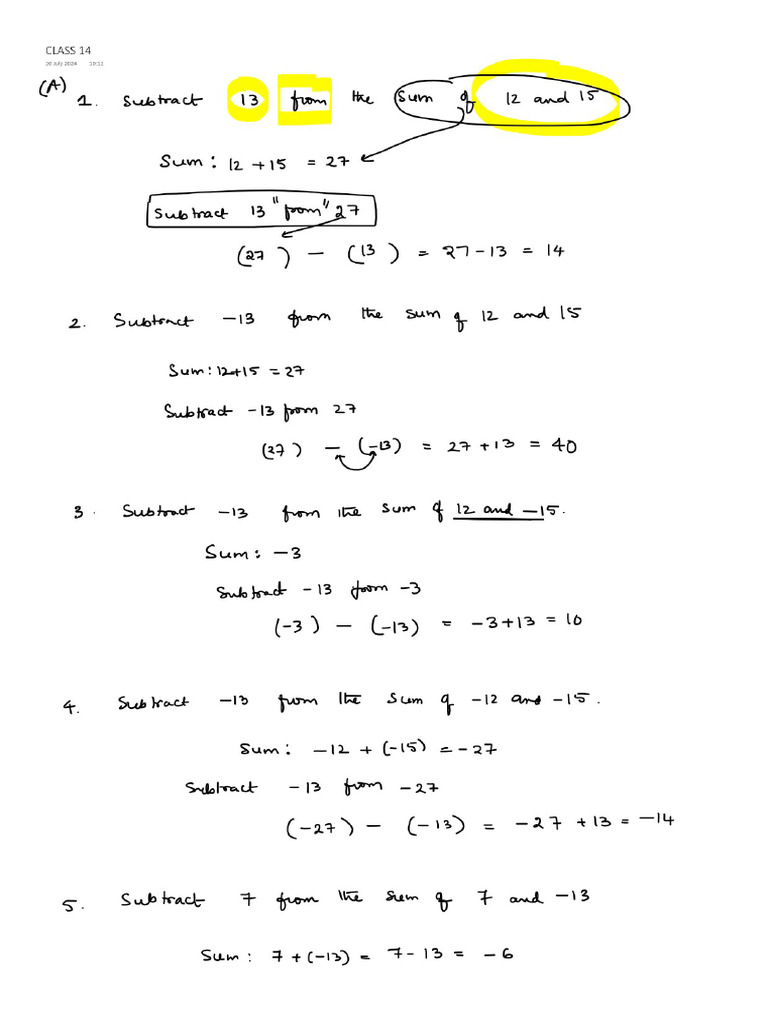 CLASS 14
20 July 2024 10:12
(A)
1. Subtract 13 from the sum of 12 and 15
Sum : 12 + 15 = 27
Subtract 13 "from" 27
(27) - (13) = 27 - 13 = 14
2. Subtract -13 from the sum of 12 and 15
Sum : 12+15 = 27
Subtract -13 from 27
(27) - (-13) = 27 + 13 = 40
3. Subtract -13 from the sum of 12 and -15.
Sum : -3
Subtract -13 from -3
(-3) - (-13) = -3+13 = 10
4. Subtract -13 from the sum of -12 and -15.
Sum : -12 + (-15) = -27
Subtract -13 from -27
(-27) - (-13) = -27 +13 = -14
5. Subtract 7 from the sum of 7 and -13
Sum : 7 + (-13) = 7 - 13 = -6